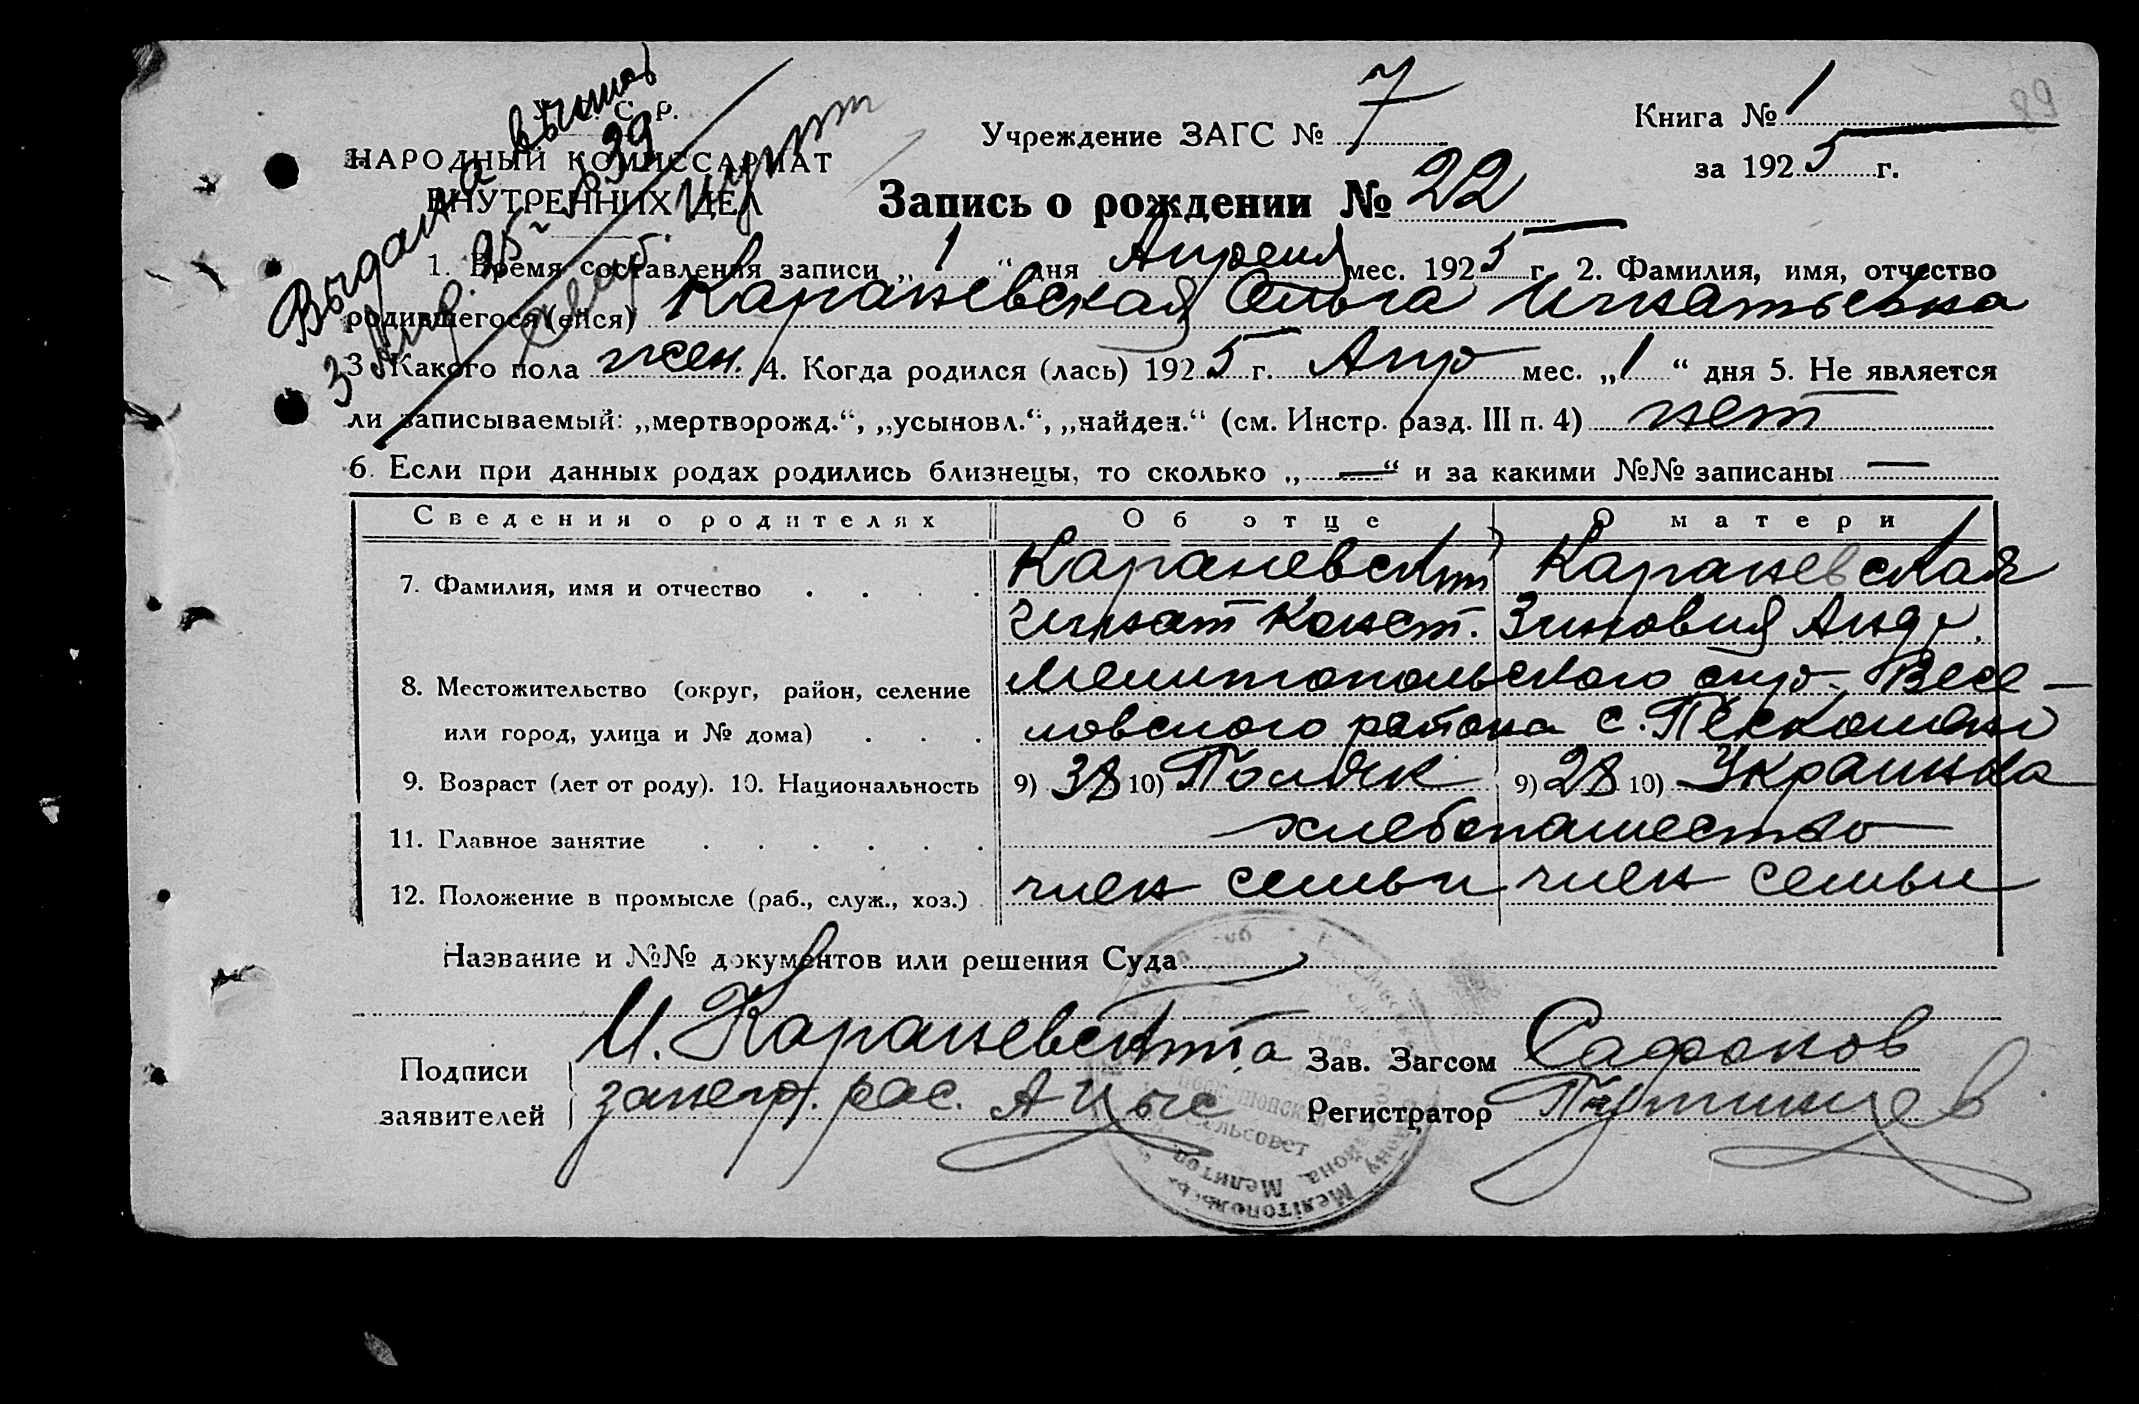 С. Р.
НАРОДНЫЙ КОМИССАРИАТ
ВНУТРЕННИХ ДЕЛ
Выдана
Учреждение ЗАГС № 7
Книга № 1
за 1925 г.
89
Запись о рождении № 22
1. Время составления записи „1“ дня Апреля мес. 1925 г. 2. Фамилия, имя, отчество
родившегося (ейся) Караневская Ольга Игнатьевна
3. Какого пола жен. 4. Когда родился (лась) 1925 г. Апр мес. „1“ дня 5. Не является
ли записываемый: „мертворожд.“, „усыновл.“, „найден.“ (см. Инстр. разд. III п. 4) нет
6. Если при данных родах родились близнецы, то сколько „—“ и за какими №№ записаны —
Сведения о родителях Об отце О матери
7. Фамилия, имя и отчество Караневский Караневская
Игнат Конст. Зиновия Андр.
8. Местожительство (округ, район, селение Мелитопольского окр. Весе-
или город, улица и № дома) ловского района с.
9. Возраст (лет от роду). 10. Национальность 9) 38 10) Поляк 9) 28 10) Украинка
11. Главное занятие хлебопашество
12. Положение в промысле (раб., служ., хоз.) член семьи член семьи
Название и №№ документов или решения Суда
Подписи заявителей И. Караневский, а
за негр. рас.
Зав. Загсом Сафонов
Регистратор
сельсовет